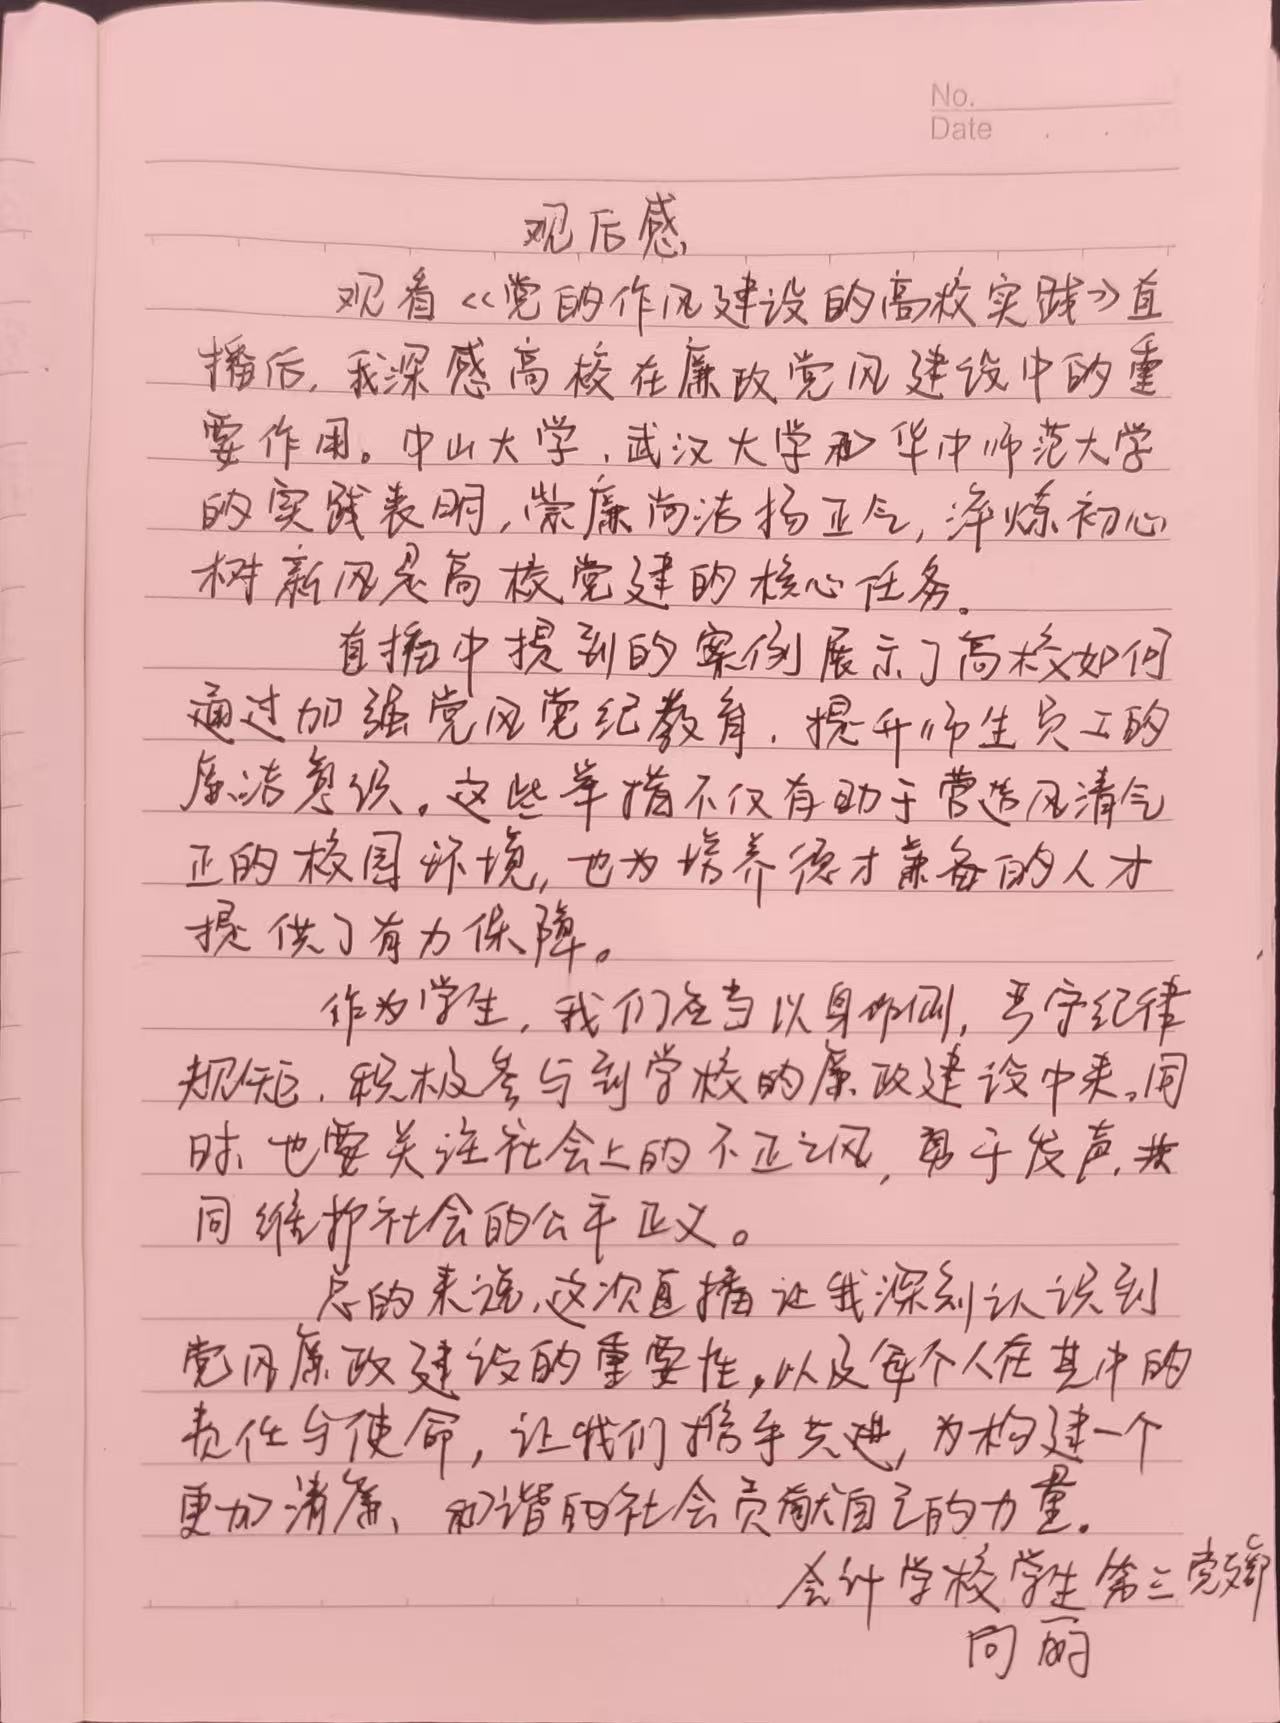 No.
Date
观后感
观看《党的作风建设的高校实践》直
播后,我深感高校在廉政党风建设中的重
要作用。中山大学、武汉大学和华中师范大学
的实践表明,崇廉尚洁扬正气,淬炼初心
树新风是高校党建的核心任务。
直播中提到的案例展示了高校如何
通过加强党风党纪教育,提升师生员工的
廉洁意识。这些举措不仅有助于营造风清气
正的校园环境,也为培养德才兼备的人才
提供了有力保障。
作为学生,我们应当以身作则,严守纪律
规矩,积极参与到学校的廉政建设中来。同
时,也要关注社会上的不正之风,勇于发声,共
同维护社会的公平正义。
总的来说,这次直播让我深刻认识到
党风廉政建设的重要性,以及每个人在其中的
责任与使命,让我们携手共进,为构建一个
更加清廉、和谐的社会贡献自己的力量。
会计学校学生第三党支部
向丽